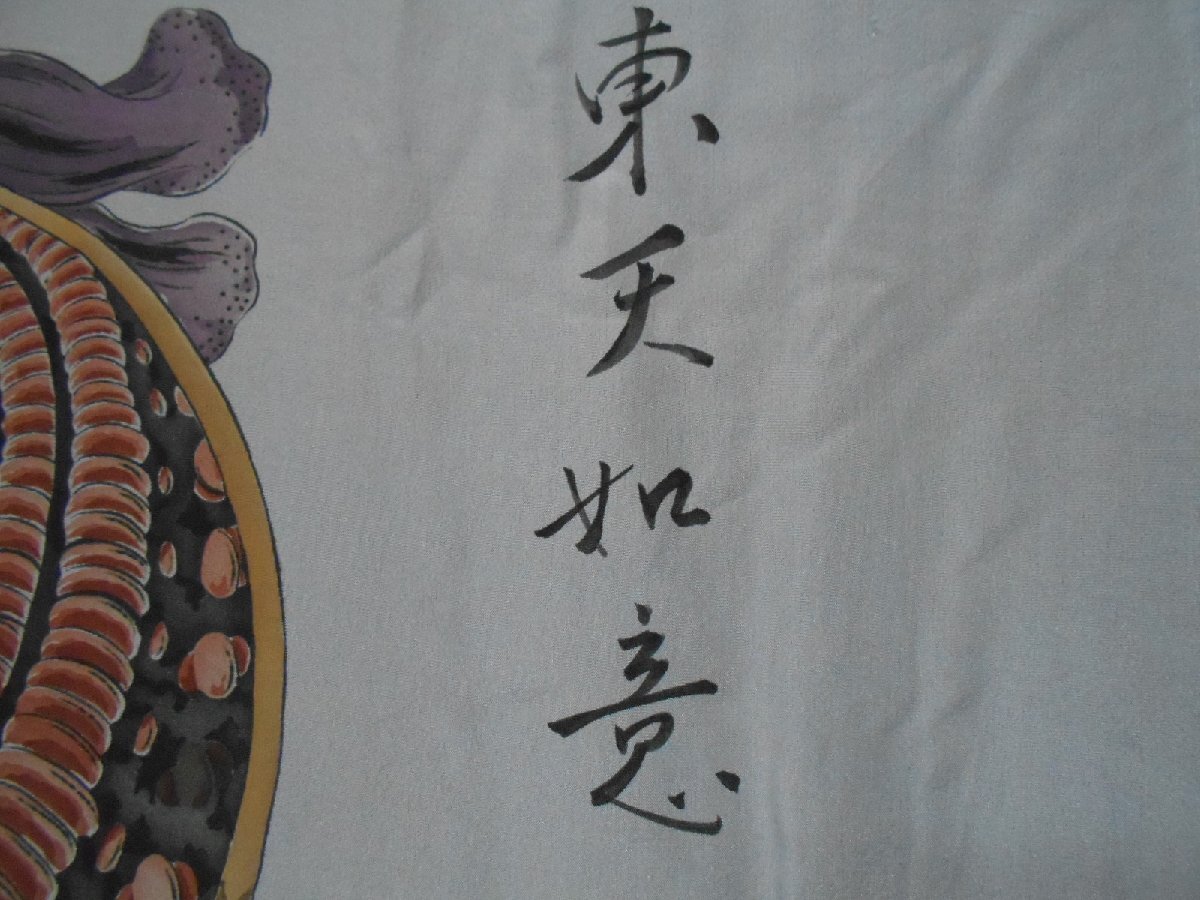 東天如意